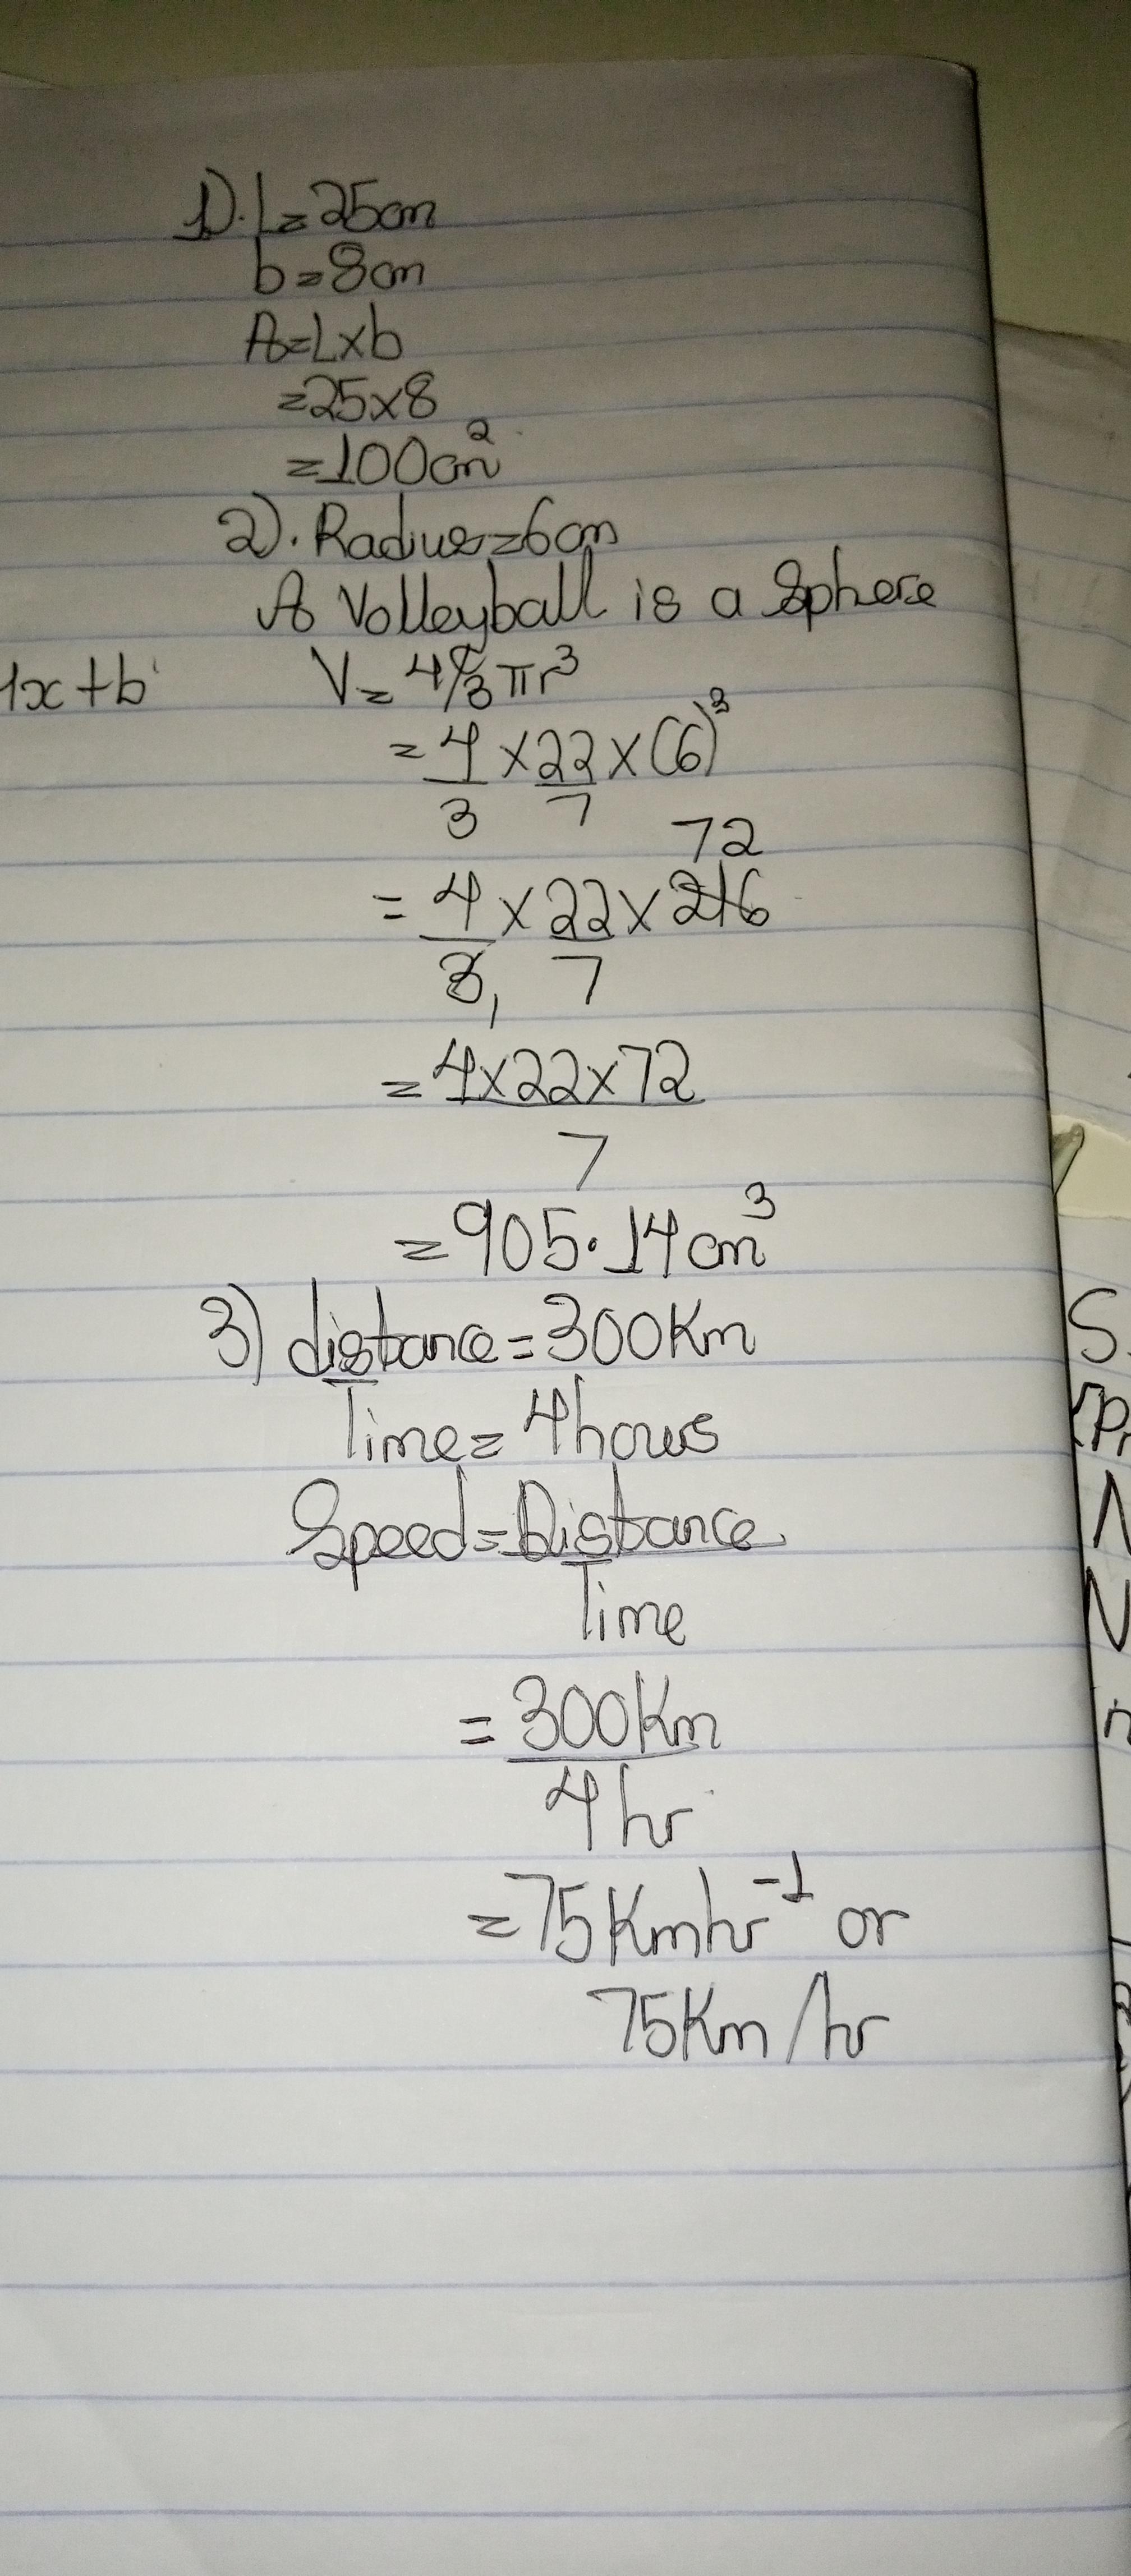 1). L = 25cm
b = 8cm
A = L x b
= 25 x 8
= 100cm²
2). Radius = 6cm
A Volleyball is a Sphere
1x + b V = 4/3 πr³
= 4/3 x 22/7 x (6)³
72
= 4/3 x 22/7 x 216
1
= 4x22x72
7
= 905.14cm³
3) distance = 300Km
Time = 4hours
Speed = Distance
Time
= 300Km
4hr
= 75Kmhr⁻¹ or
75Km/hr
S
N
N